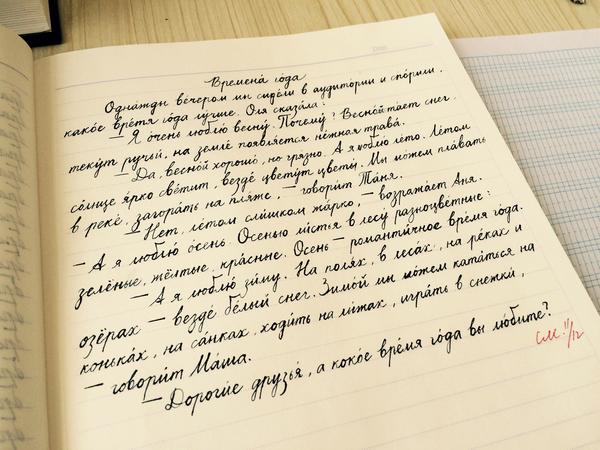 Времена́ го́да
Одна́жды ве́чером мы сиде́ли в аудито́рии и спо́рили,
како́е вре́мя го́да лу́чше. Оля сказа́ла:
— Я о́чень люблю́ весну́. Почему́? Весно́й та́ет снег.
теку́т ручьи́, на земле́ появля́ется не́жная трава́.
— Да, весно́й хорошо́, но гря́зно. А я люблю́ ле́то. Ле́том
со́лнце я́рко све́тит, везде́ цвету́т цветы́. Мы мо́жем пла́вать
в реке́, загора́ть на пля́же, — говори́т Та́ня.
— Нет, ле́том сли́шком жа́рко, — возража́ет Аня.
— А я люблю́ о́сень. Осенью ли́стья в лесу́ разноцве́тные:
зелёные, жёлтые, кра́сные. Осень — романти́чное вре́мя го́да.
— А я люблю́ зи́му. На поля́х, в леса́х, на ре́ках и
озёрах — везде́ бе́лый снег. Зимо́й мы мо́жем ката́ться на
конька́х, на са́нках, ходи́ть на лы́жах, игра́ть в снежки́,
— говори́т Ма́ша.
— Дороги́е друзья́, а како́е вре́мя го́да вы лю́бите?
см. 11/12